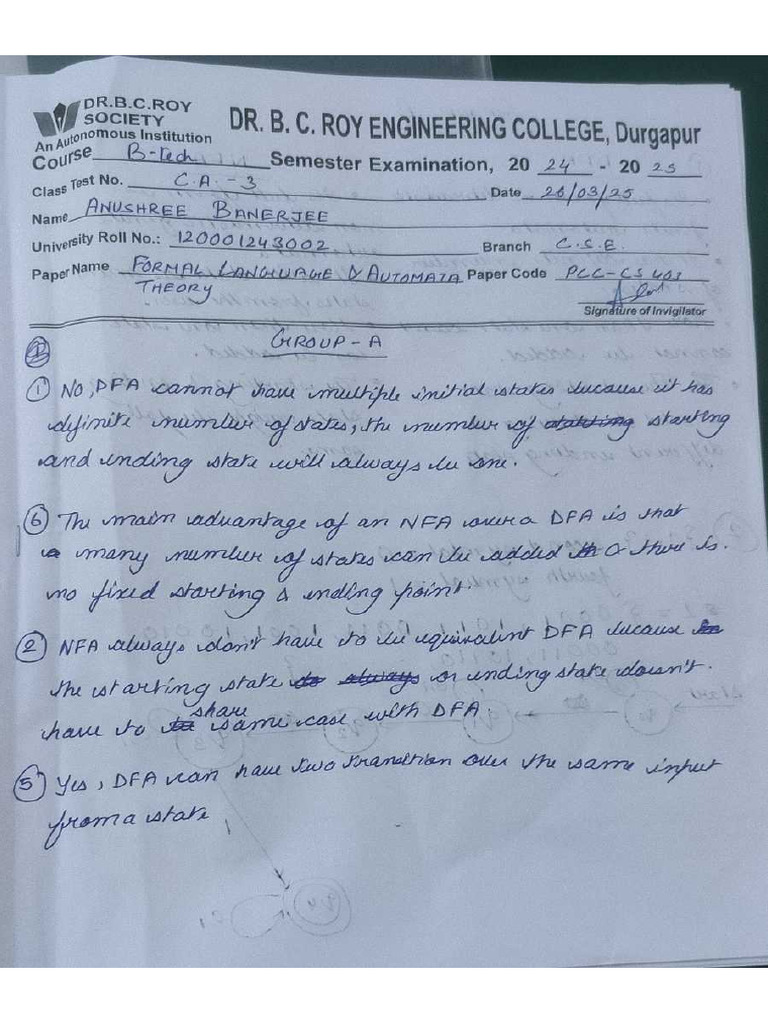 DR.B.C.ROY
SOCIETY
An Autonomous Institution
DR. B. C. ROY ENGINEERING COLLEGE, Durgapur
Course B-Tech Semester Examination, 20 24 - 20 25
Class Test No. C.A.-3 Date 26/03/25
Name ANUSHREE BANERJEE
University Roll No.: 120001243002 Branch C.S.E.
Paper Name FORMAL LANGUAGE & AUTOMATA Paper Code PCC-CS 401
THEORY
Signature of Invigilator
GROUP-A
① No, DFA cannot have multiple initial states because it has
definite number of states, the number of starting
and ending state will always be one.
⑥ The main advantage of an NFA over a DFA is that
many number of states can be added & there is
no fixed starting & ending point.
② NFA always don't have to be equivalent DFA because
the starting state or ending state doesn't
have to share same case with DFA.
⑤ Yes, DFA can have two trandtion over the same input
from a state